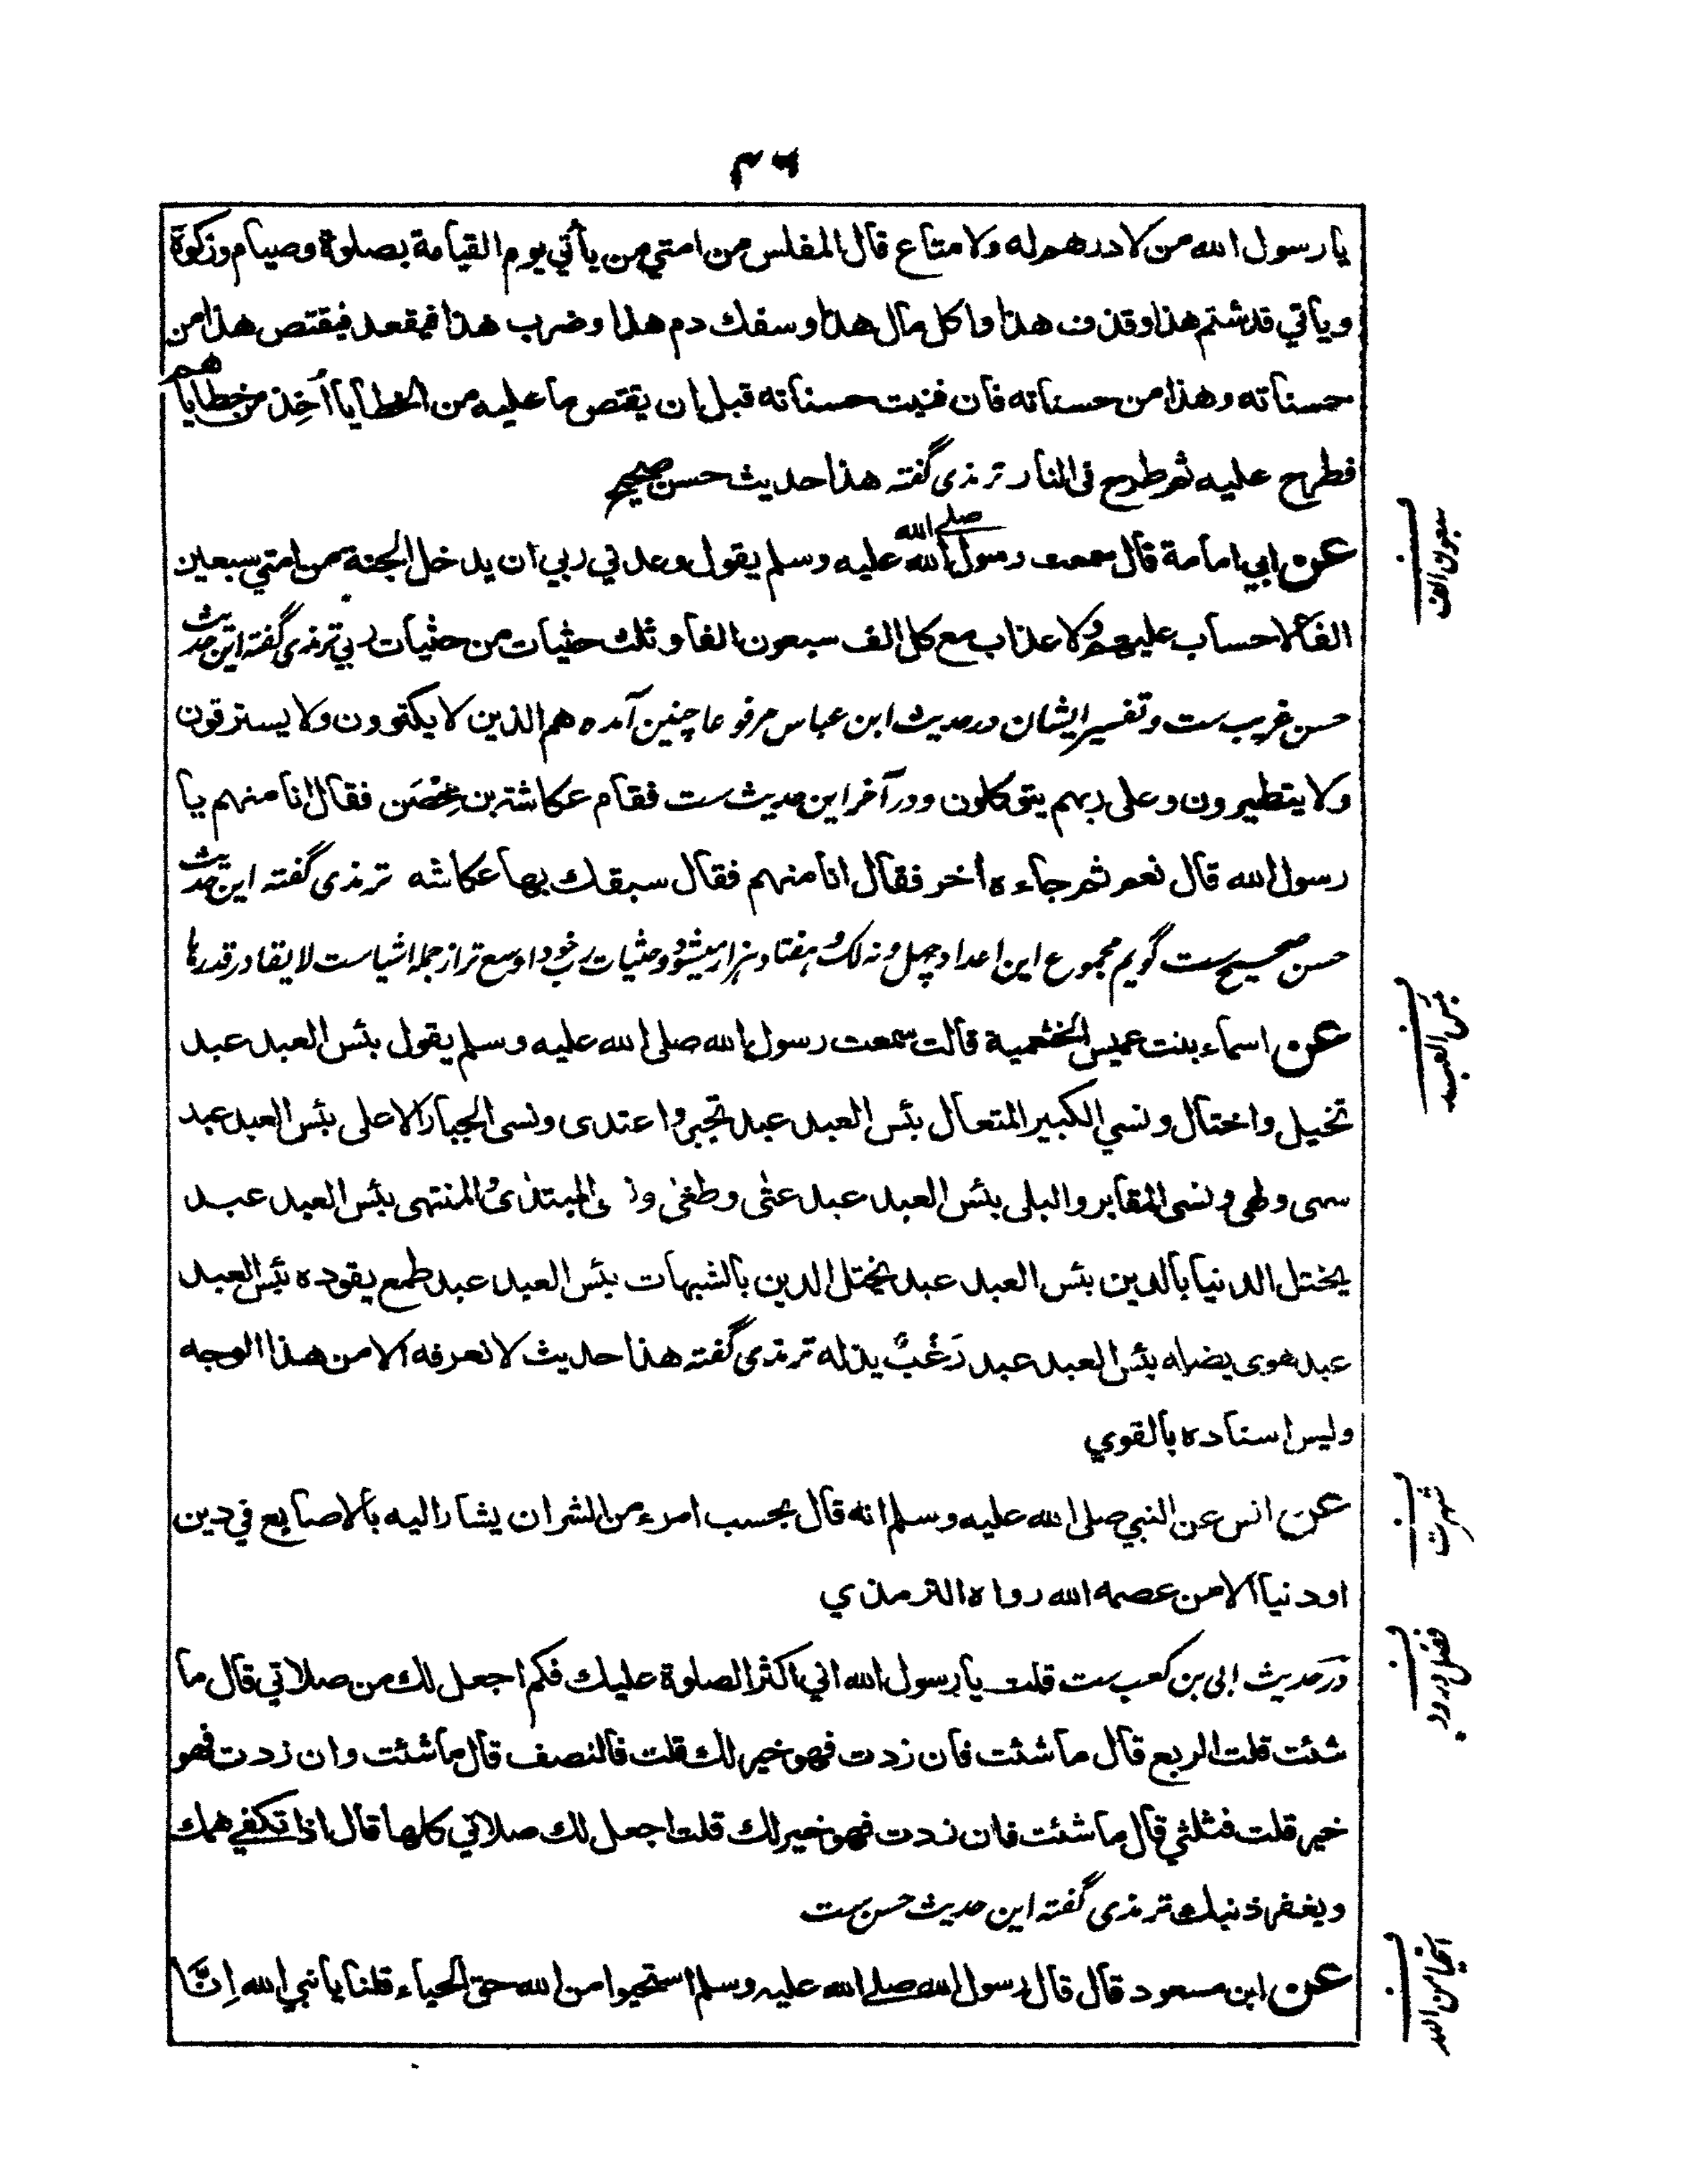 يا رسول الله من لا درهم له ولا متاع قال المفلس من امتي من يأتي يوم القيامة بصلوة وصيام وزكوة
ويأتي قد شتم هذا وقذف هذا واكل مال هذا وسفك دم هذا وضرب هذا فيقعد فيقتص هذا من
حسناته وهذا من حسناته فان فنيت حسناته قبل ان يقتص ما عليه من الخطايا أُخِذ من خطاياهم
فطرح عليه ثم طرح فى النار ترمذى گفته هذا حديث حسن صحيح
سبعون الف
عن ابي امامة قال سمعت رسول الله صلے الله عليه وسلم يقول وعدني ربي ان يدخل الجنة من امتي سبعين
الفا لا حساب عليهم ولا عذاب مع كل الف سبعون الفا وثلث حثيات من حثيات ربي ترمذى گفته اين حديث
حسن غريب ست وتفسير ايشان در حديث ابن عباس مرفوعا چنين آمده هم الذين لا يكتوون ولا يسترقون
ولا يتطيرون وعلى ربهم يتوكلون ودر آخر اين حديث ست فقام عكاشة بن مِحْصَن فقال انا منهم يا
رسول الله قال نعم ثم جاءه أخر فقال انا منهم فقال سبقك بها عكاشه ترمذى گفته اين حديث
حسن صحيح ست گويم مجموع اين اعداد چهل و نه لك و هفتاد هزار ميشود وحثيات رب خود اوسع تر از جمله اشياست لا يقادر قدرها
بئس العبد
عن اسماء بنت عميس الخثعمية قالت سمعت رسول الله صلى الله عليه وسلم يقول بئس العبد عبد
تخيل واختال ونسي الكبير المتعال بئس العبد عبد تجبر واعتدى ونسى الجبار الاعلى بئس العبد عبد
سهى ولهى ونسى المقابر والبلى بئس العبد عبد عثى وطغى المبتدئ والمنتهى بئس العبد عبد
يختل الدنيا بالدين بئس العبد عبد يختل الدين بالشبهات بئس العبد عبد طمع يقوده بئس العبد
عبد هوى يضله بئس العبد عبد رَغْبٌ يذله ترمذى گفته هذا حديث لا نعرفه الا من هذا الوجه
وليس اسناده بالقوي
شهرت
عن انس عن النبي صلى الله عليه وسلم انه قال بحسب امرء من الشر ان يشار اليه بالاصابع في دين
او دنيا الا من عصمه الله رواه الترمذي
فضل درود
در حديث ابى بن كعب ست قلت يا رسول الله اني اكثر الصلوة عليك فكم اجعل لك من صلاتي قال ما
شئت قلت الربع قال ما شئت فان زدت فهو خير لك قلت فالنصف قال ما شئت وان زدت فهو
خير قلت فثلثي قال ما شئت فان زدت فهو خير لك قلت اجعل لك صلاتي كلها قال اذا تكفے همك
ويغفر ذنبك ترمذى گفته اين حديث حسن ست
احيا من الله
عن ابن مسعود قال قال رسول الله صلے الله عليه وسلم استحيوا من الله حق الحياء قلنا يا نبي الله اِنَّا